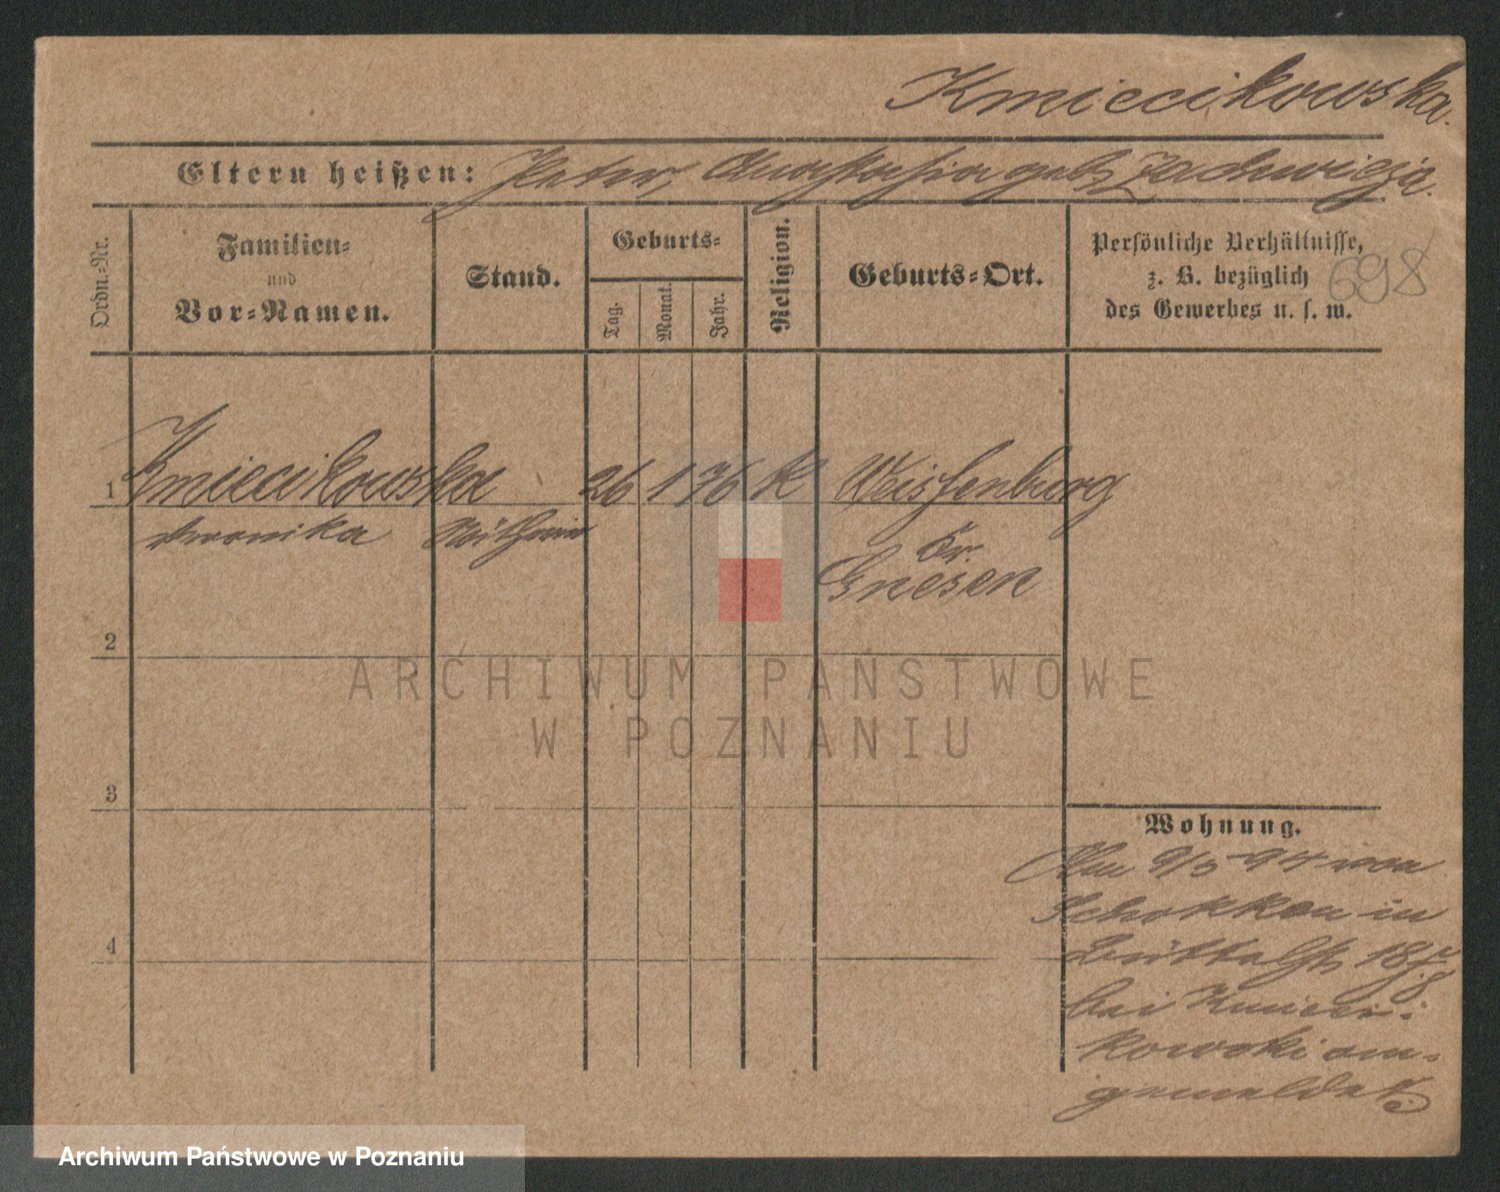 Kmiecikowska.
Eltern heißen: Peter, Anastasia geb. Zachwieja.
Ordn.-Nr.
Familien-
und
Vor-Namen.
Stand.
Geburts-
Tag.
Monat.
Jahr.
Religion.
Geburts-Ort.
Persönliche Verhältnisse,
z. B. bezüglich
des Gewerbes u. s. w.
698
1 Kmiecikowska 26 1 76 K Weissenburg
Veronika Näherin
Kr.
Gnesen
2
3
4
Wohnung.
Am 9/5 94 von
Schokken in
18/
bei Kmieci-
kowski an-
gemeldet.
ARCHIWUM PAŃSTWOWE
W POZNANIU
Archiwum Państwowe w Poznaniu